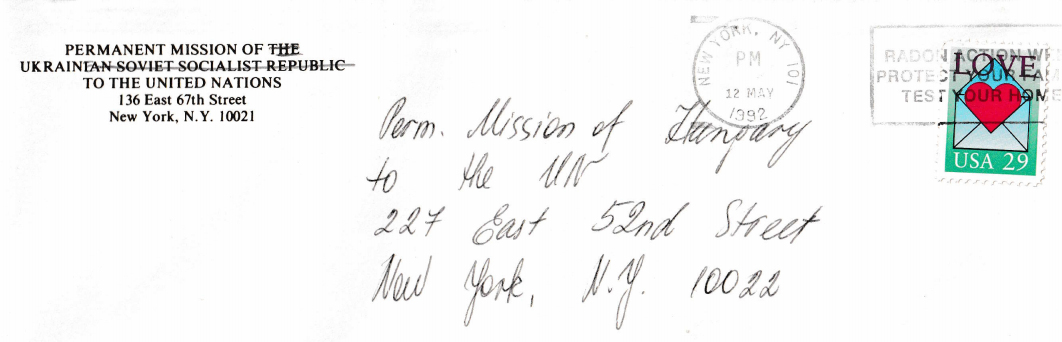 PERMANENT MISSION OF THE
UKRAINIAN SOVIET SOCIALIST REPUBLIC
TO THE UNITED NATIONS
136 East 67th Street
New York, N.Y. 10021
NEW YORK, NY 101
PM
12 MAY
1992
RADON ACTION WE
PROTECT YOUR FAM
TEST YOUR HOME
LOVE
USA 29
Perm. Mission of Hungary
to the UN
227 East 52nd Street
New York, N.Y. 10022